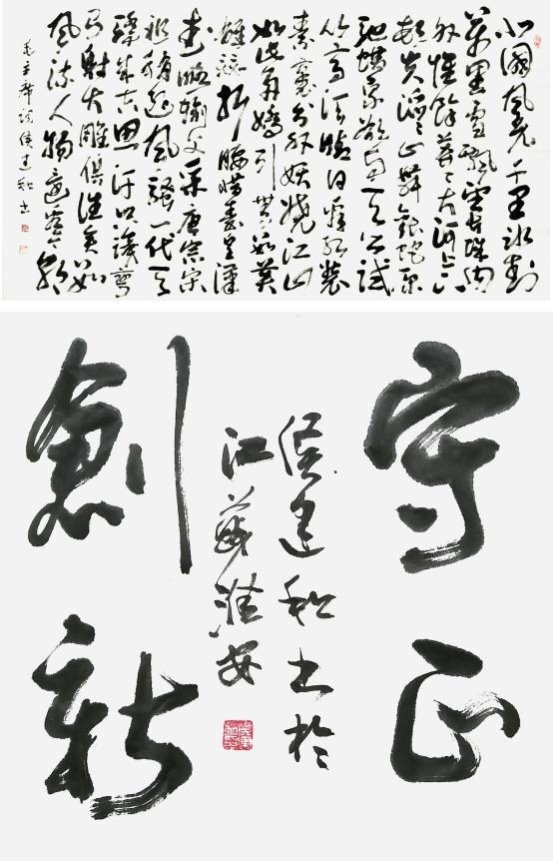 北國風光千里冰封
萬里雪飄望長城內
外惟餘莽莽大河上下
頓失滔滔山舞銀蛇原
馳蠟象欲與天公試
比高須晴日看紅裝
素裹分外妖嬈江山
如此多嬌引無數英
雄競折腰惜秦皇漢
武略輸文采唐宗宋
祖稍遜風騷一代天
驕成吉思汗只識彎
弓射大雕俱往矣數
風流人物還看今朝
毛主席詞侯建和書
守正
侯建和書於
江蘇淮安
創新